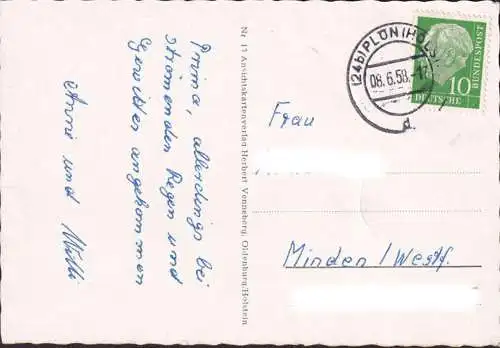 Prima, allerdings bei
strömenden Regen und
Gewitter angekommen
Anni und Mutti
Nr. 13 Ansichtskartenverlag Herbert Venneberg, Oldenburg/Holstein.
(24b) PLÖN (HOLST)
08.6.58.-17
d
10
DEUTSCHE
BUNDESPOST
Frau
Minden/Westf.